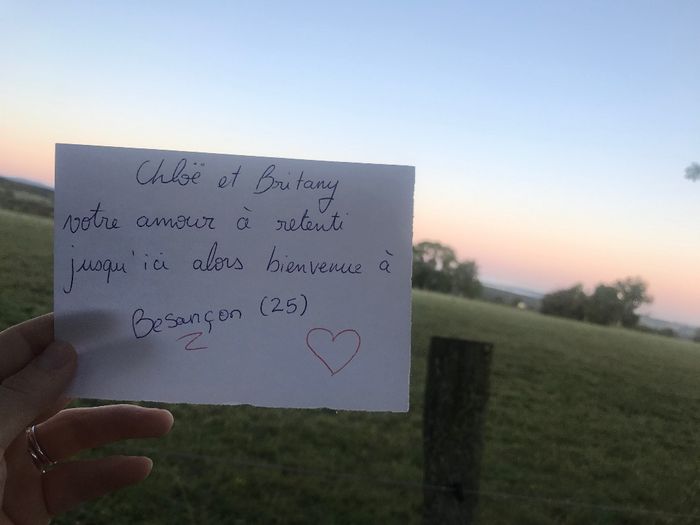 Chloë et Britany
votre amour à retenti
jusqu'ici alors bienvenue à
Besançon (25)